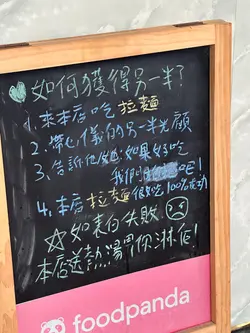 如何獲得另一半?
1. 來本店吃拉麵
2. 帶心儀的另一半光顧
3. 告訴他/她:如果好吃
我們吧!
4. 本店拉麵很好吃100%成功
☆如表白失敗☹
本店送熱湯幫你淋他!
foodpanda